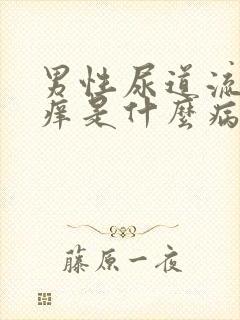 男性尿道流
痒是什麼病
藤原一夜